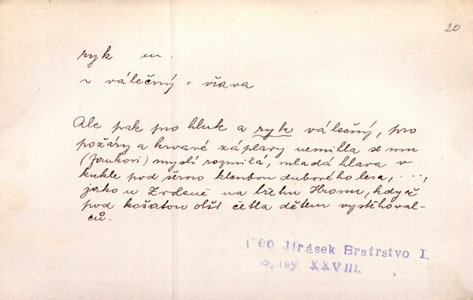 20
ryk m.
~ válečný = vřava
Ale pak pro hluk a ryk válečný, pro
požáry a krvavé záplavy nemihla se mu
(Jankovi) myslí rozmilá, mladá hlava v
kukle pod šerou klenbou dubového lesa, ...,
jako u Zvdené na břehu Hronu, když
pod košatou olší četla dětem vystěhoval-
ců.
Jirásek Bratrstvo I.
Spisy XXVIII.